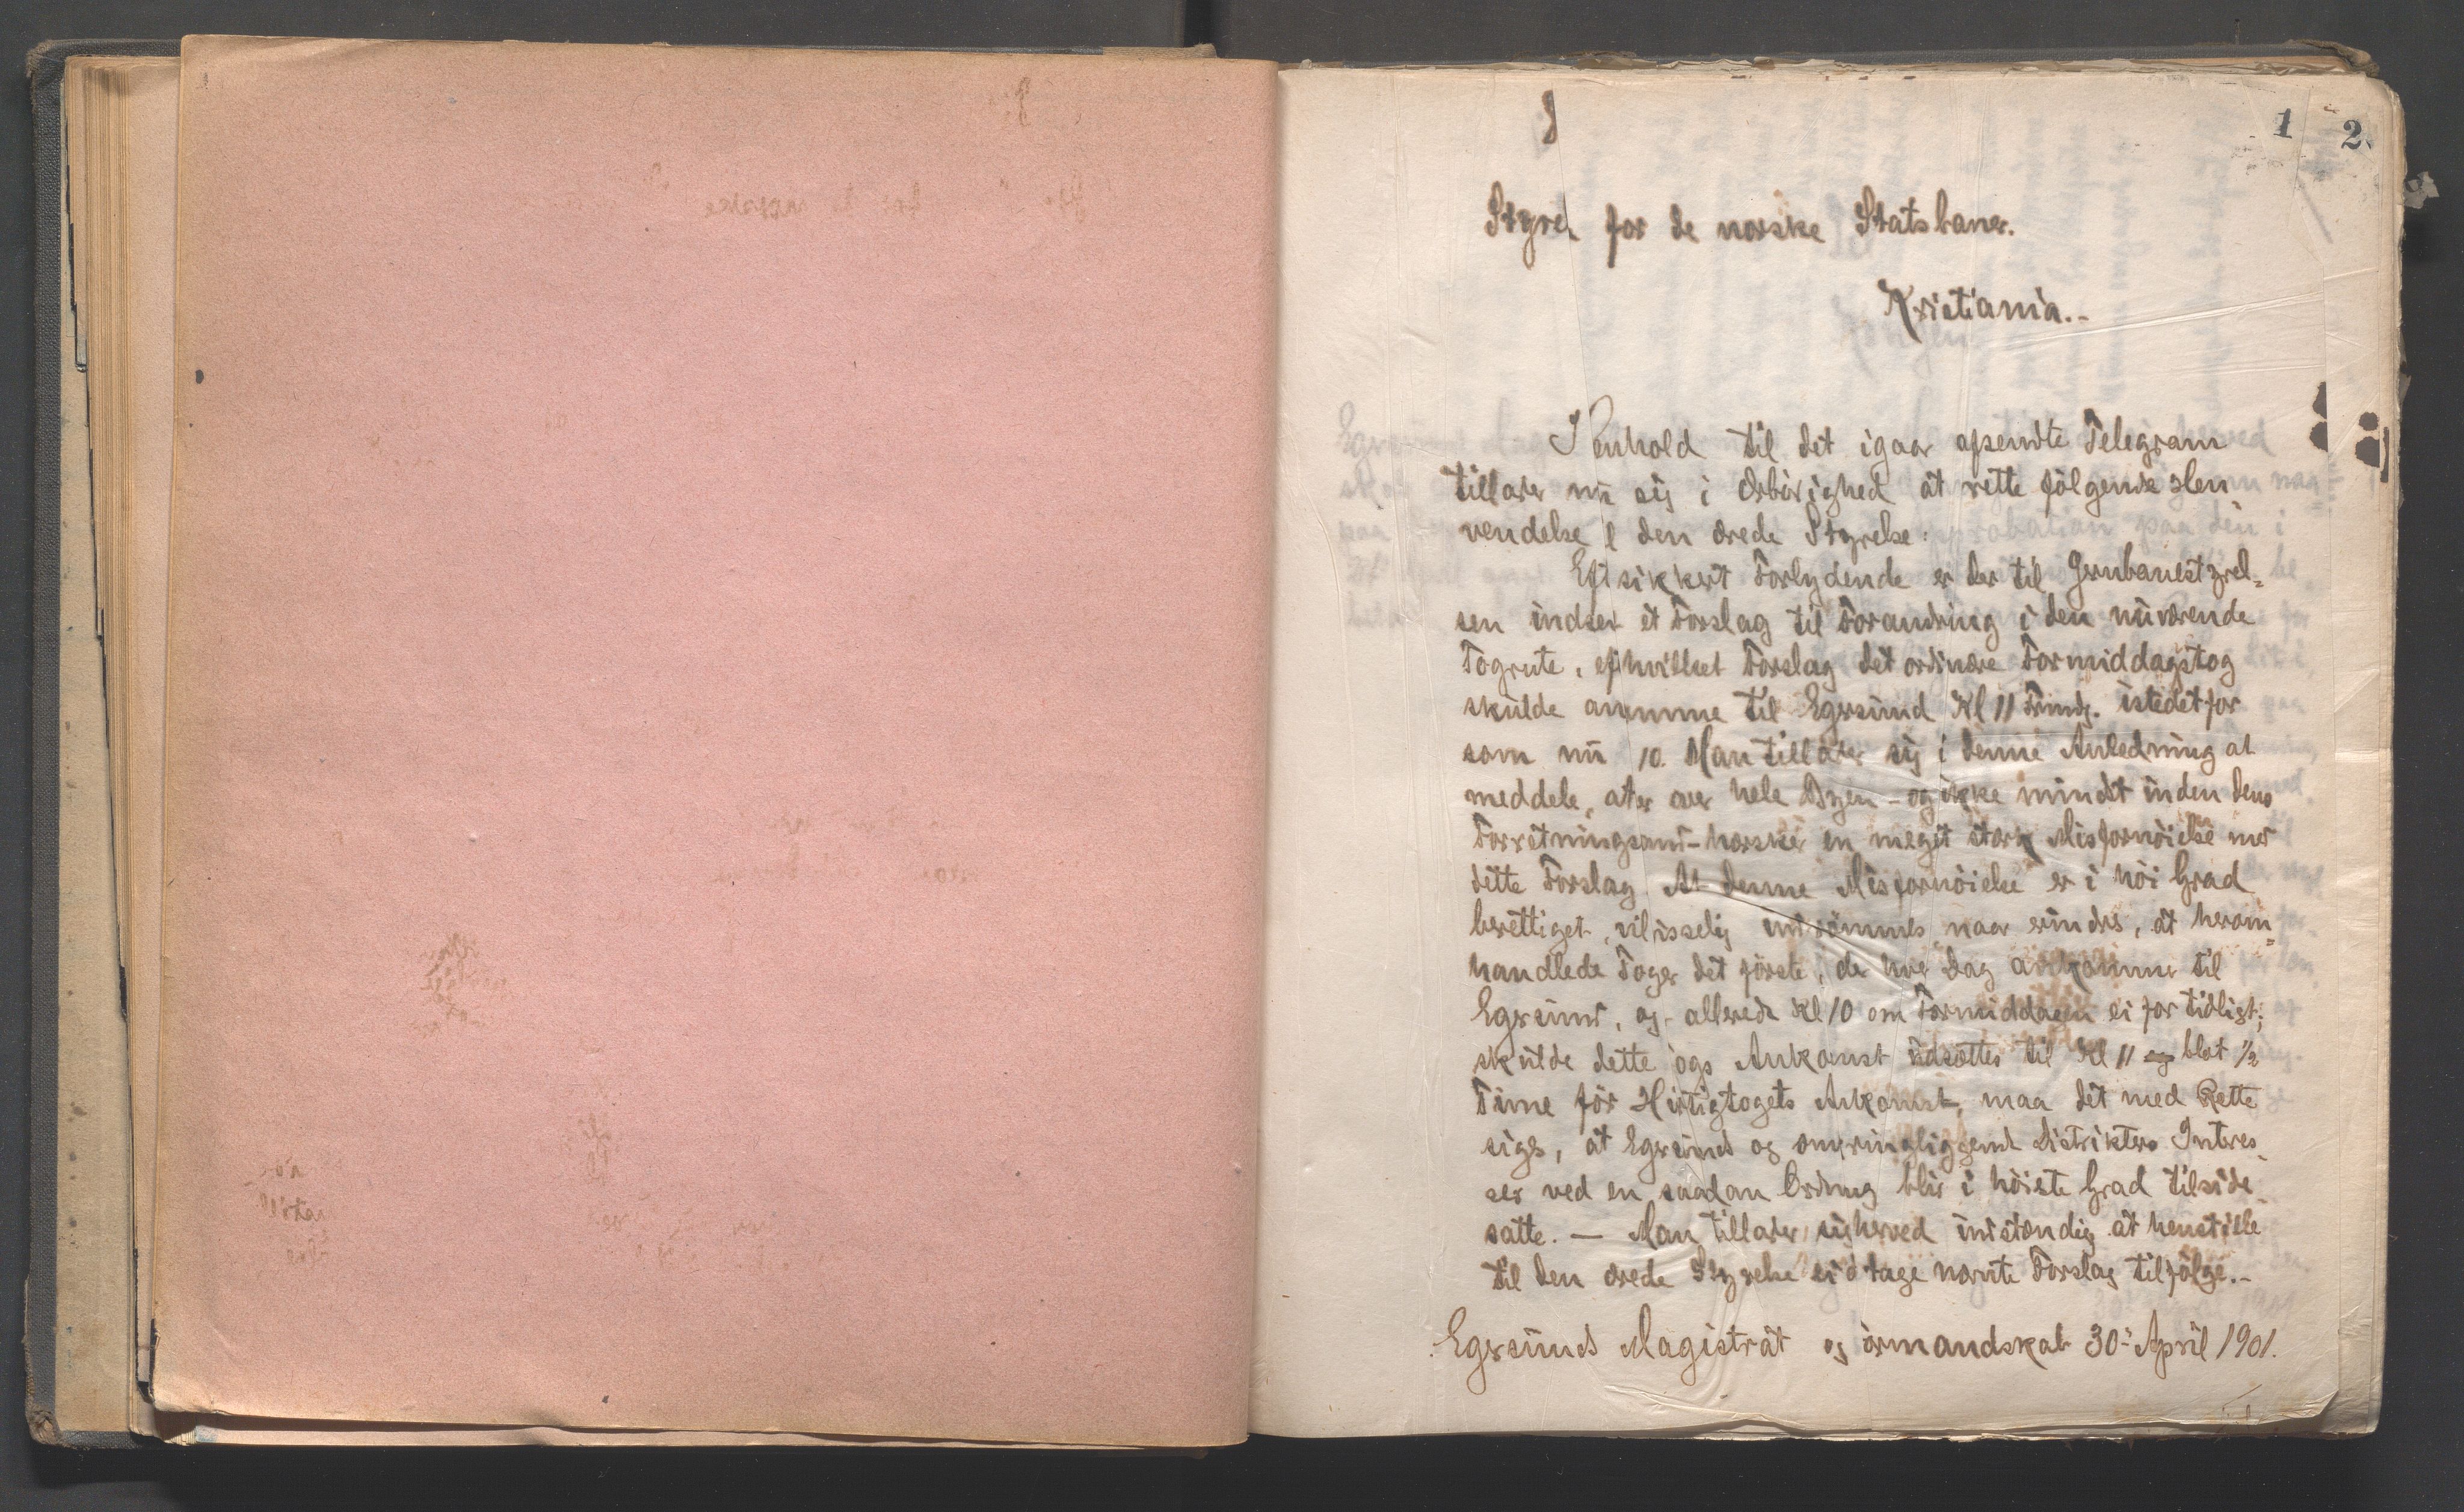 1 2.
Styre for de norske Statsbaner.
Kristiania.-
I Henhold til det igaar afsendte Telegram
tillader man sig i Ærbødighed at rette følgende Hen
vendelse til den ærede Styrelse:
Eft sikkert Forlydende er der til Jernbanestyrel=
sen indsen et Forslag til Forandring i den nuværende
Togrute, eft hvilket Forslag det ordinære Formiddagstog
skulde ankomme til Egersund Kl 11 Frmdg. istedetfor
som nu 10. Man tillader sig i denne Anledning at
meddele, at er over hele Byen - og ikke mindst inden dens
Forretningsand - hersker en meget stærk Misfornøielse med
dette Forslag. At denne Misfornøielse er i høi Grad
berettiget, vil isselig indrømmes, naar erindres, at herom=
handlede Tog er det første, der hver Dag ankommer til
Egersund, og allerede Kl 10 om Formiddagen ei for tidligt;
skulde dette ogs Ankomst udsættes til Kl 11 og blot 1/2
Time før Hurtigtogets Ankomst, maa det med Rette
siges, at Egersunds og omkringliggende Distrikters Interes
ser ved en saadan Ordning blir i høieste Grad tilside
satte. — Man tillader sig herved indstændig at henstille
til den ærede Styrelse ei at tage nævnte Forslag tilfølge.-
Egersunds Magistrat og ormandskab 30' April 1901.